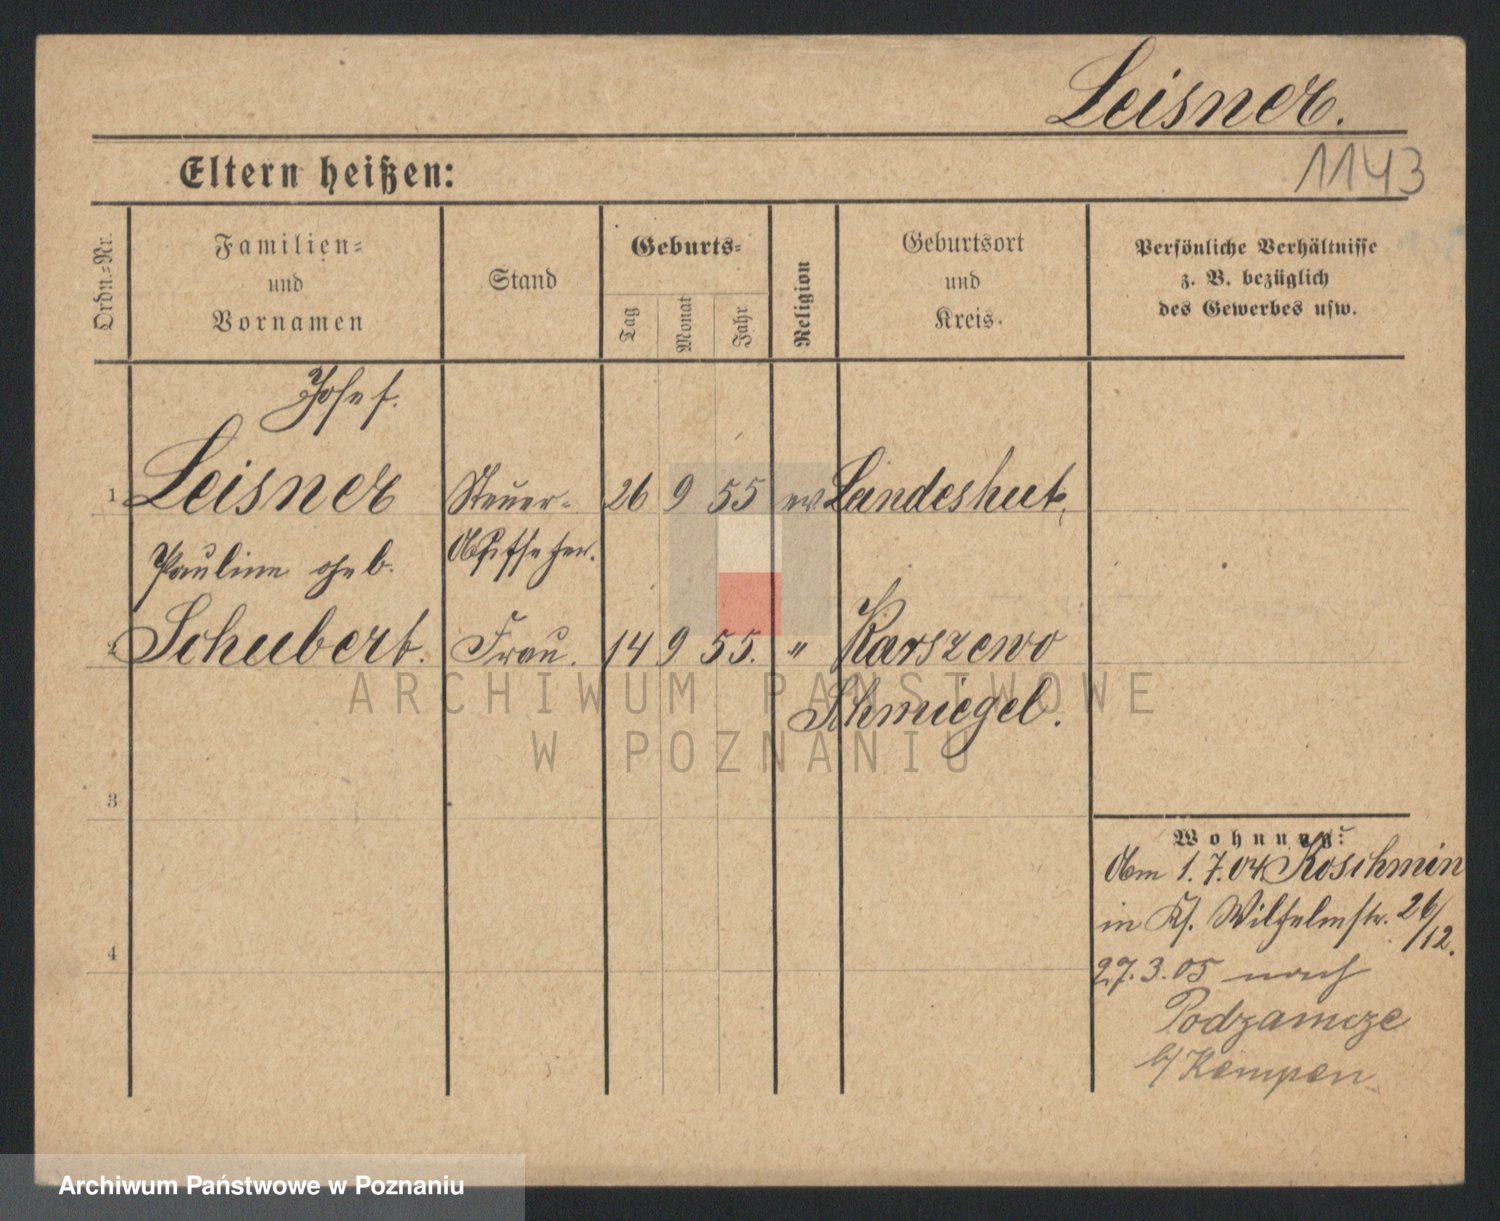 Leisner.
1143
Eltern heißen:
Ordn.-Nr.
Familien-
und
Vornamen
Stand
Geburts-
Tag
Monat
Jahr
Religion
Geburtsort
und
Kreis.
Persönliche Verhältnisse
z. B. bezüglich
des Gewerbes usw.
Josef.
1 Leisner Steuer- 26 9 55 ev Landeshut.
Pauline geb. Aufseher.
2 Schubert. Frau. 14 9 55. " Karszewo
Schmiegel.
3
4
Wohnung:
Am 1.7.04 Koschmin
in Ks. Wilhelmstr. 26/12.
27.3.05 nach
Podzamcze
b/ Kempen
ARCHIWUM PAŃSTWOWE
W POZNANIU
Archiwum Państwowe w Poznaniu